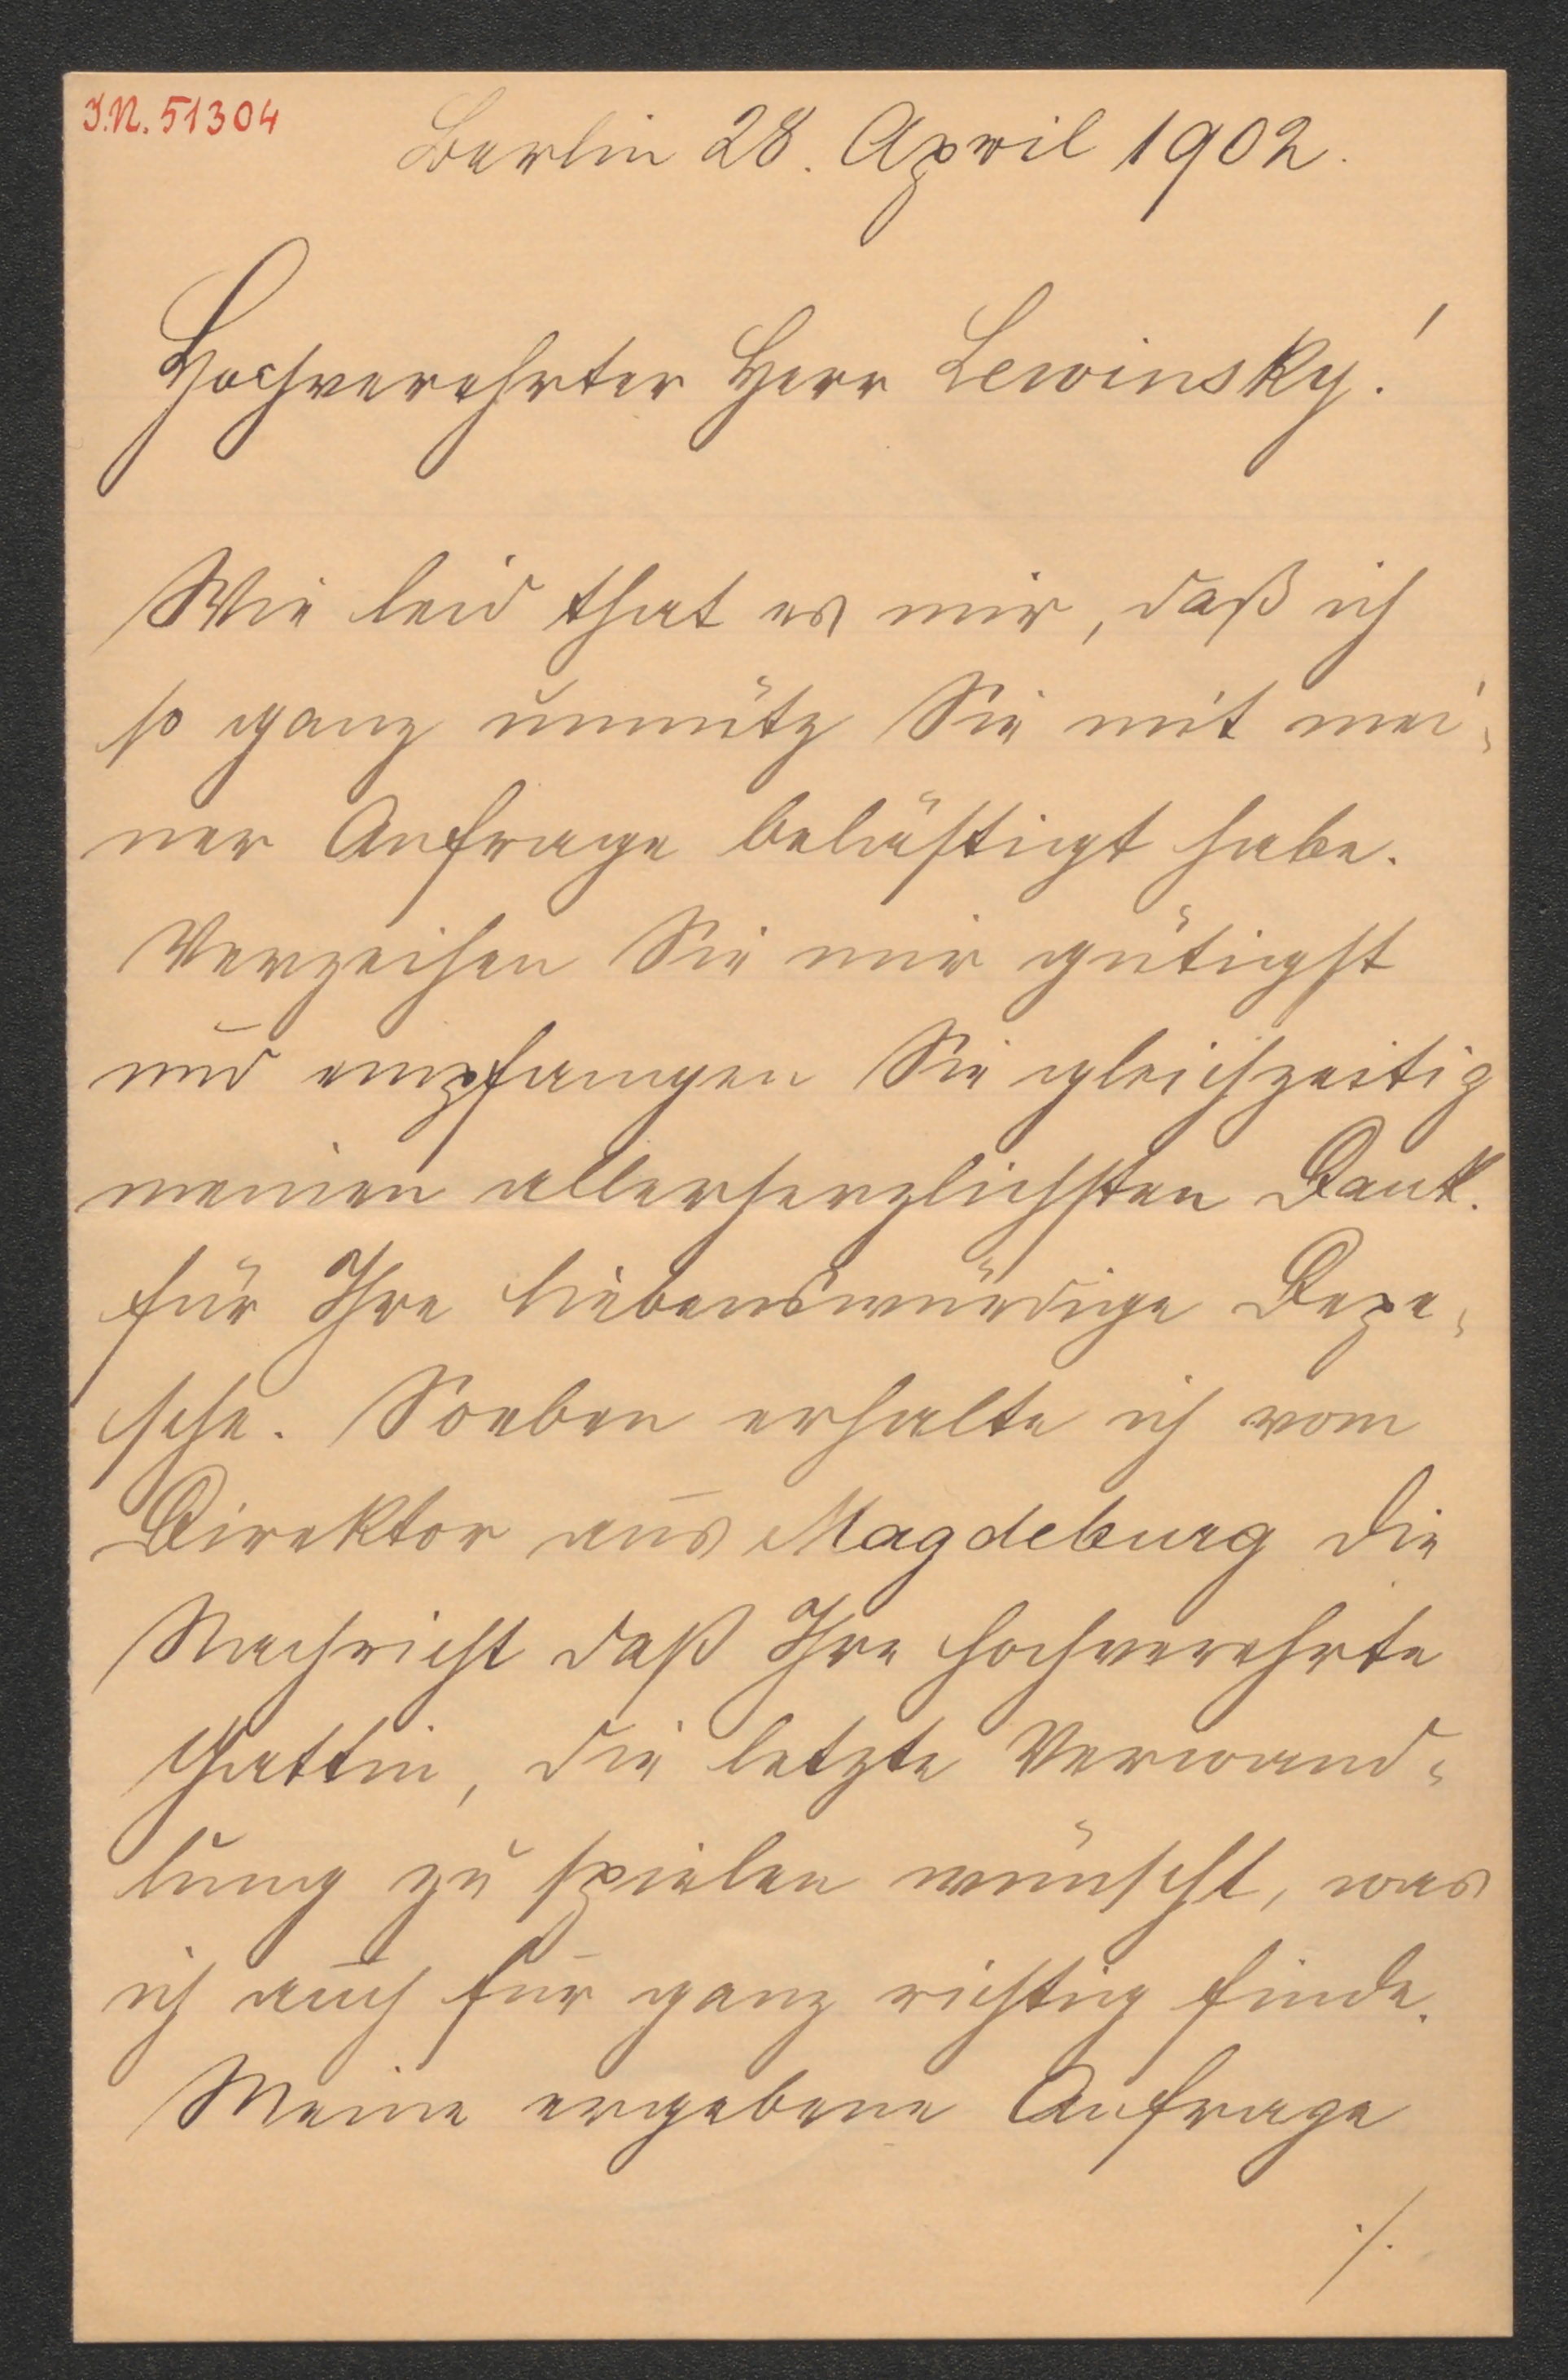 J.N. 51304
Berlin 28. April 1902.
Hochverehrter Herr Lewinsky!
Wie leid that es mir, daß ich
so ganz unnütz Sie mit mei-
ner Anfrage belästigt habe.
Verzeihen Sie mir gütigst
und empfangen Sie gleichzeitig
meinen allerherzlichsten Dank.
für Ihre liebenswürdige Depe-
sche. Soeben erhalte ich vom
Direktor aus Magdeburg die
Nachricht daß Ihre hochverehrte
Gattin, die letzte Verwand-
lung zu spielen wünscht, was
ich auch für ganz richtig finde.
Meine ergebene Anfrage
./.